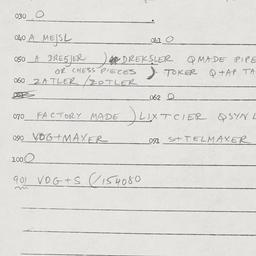 030 O
040 A MEJSL 041 O
050 A DRESJER ) DREKSLER Q MADE PIPE
OR CHESS PIECES ) TOKER Q+AP TA
060 ZATLER/ZOTLER
062 O
070 FACTORY MADE ) LIXTCIER QSYN L
090 VDG+MAYER 091 S+TELMAXER
100 O
901 VDG+S (/154080